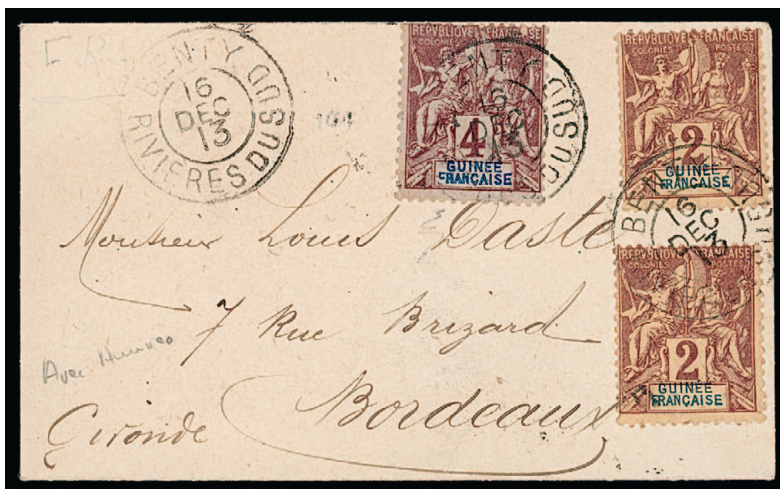 BENTY
16
DEC
13
RIVIERES DU SUD
REPVBLIQVE FRANÇAISE
COLONIES POSTES
4
GUINÉE
FRANÇAISE
16
13
DU SUD
REPVBLIQVE FRANÇAISE
COLONIES POSTES
2
GUINÉE
FRANÇAISE
16
DEC
13
REPVBLIQVE FRANÇAISE
COLONIES POSTES
2
GUINÉE
FRANÇAISE
Monsieur Louis Daste
7 Rue Brizard
Bordeaux
Gironde
Avec